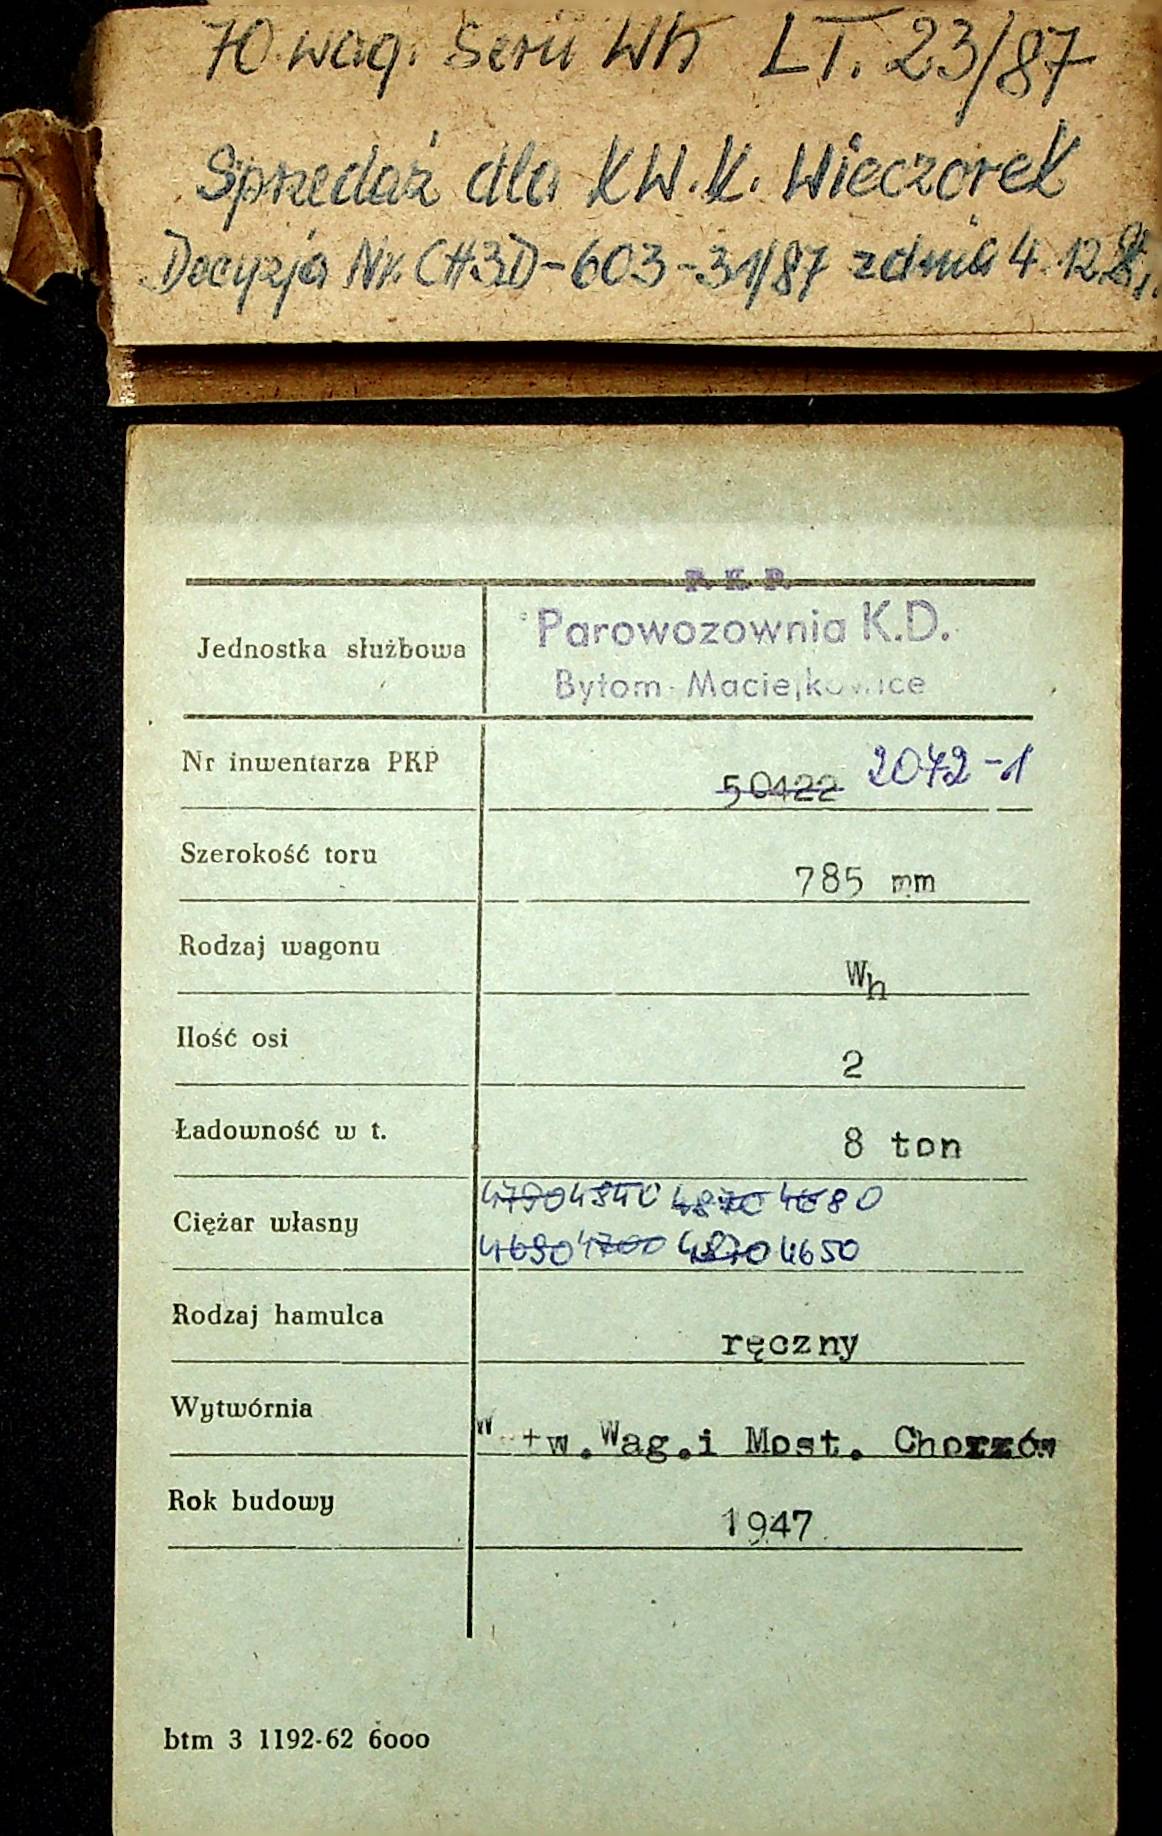 70 wag. Serii Wh LT. 23/87
Sprzedaż dla KW.K. Wieczorek
Decyzja Nr. CH3D-603-31/87 z dnia 4.12.
P. K. P.
Jednostka służbowa Parowozownia K.D.
Bytom-Maciejkowice
Nr inwentarza PKP 50422 2042-1
Szerokość toru 785 mm
Rodzaj wagonu Wh
Ilość osi 2
Ładowność w t. 8 ton
4790 4840 4870 4680
Ciężar własny
4690 4700 4870 4650
Rodzaj hamulca ręczny
Wytwórnia Wytw.Wag.i Most. Chorzów
Rok budowy 1947
btm 3 1192-62 6000